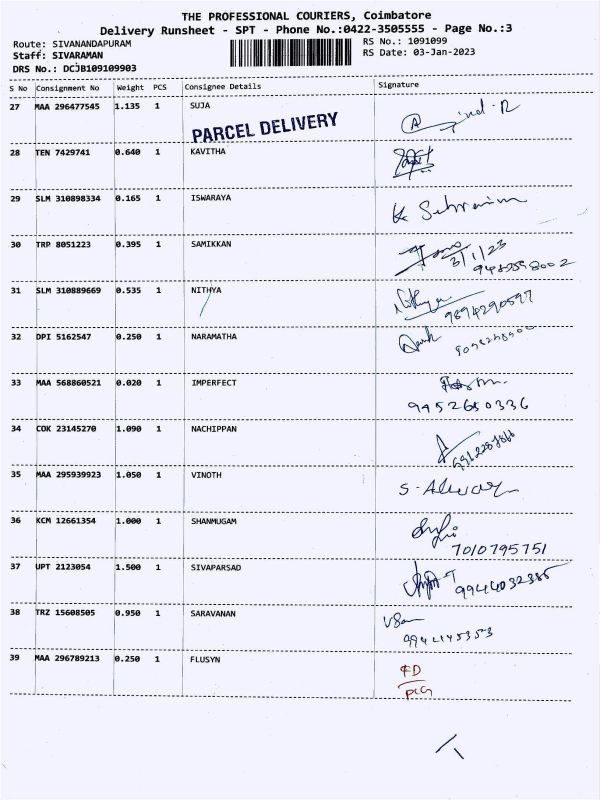 THE PROFESSIONAL COURIERS, Coimbatore
Delivery Runsheet - SPT - Phone No.:0422-3505555 - Page No.:3
Route: SIVANANDAPURAM RS No.: 1091099
Staff: SIVARAMAN RS Date: 03-Jan-2023
DRS No.: DCJB109109903
S No Consignment No Weight PCS Consignee Details Signature
27 MAA 296477545 1.135 1 SUJA
PARCEL DELIVERY
28 TEN 7429741 0.640 1 KAVITHA
29 SLM 310898334 0.165 1 ISWARAYA
30 TRP 8051223 0.395 1 SAMIKKAN
3/1/23
31 SLM 310889669 0.535 1 NITHYA Nithya
9894290597
32 DPI 5162547 0.250 1 NARAMATHA
33 MAA 568860521 0.020 1 IMPERFECT
9452650336
34 COK 23145270 1.090 1 NACHIPPAN
35 MAA 295939923 1.050 1 VINOTH
36 KCM 12661354 1.000 1 SHANMUGAM
7010795751
37 UPT 2123054 1.500 1 SIVAPARSAD
9944032385
38 TRZ 15608505 0.950 1 SARAVANAN
39 MAA 296789213 0.250 1 FLUSYN